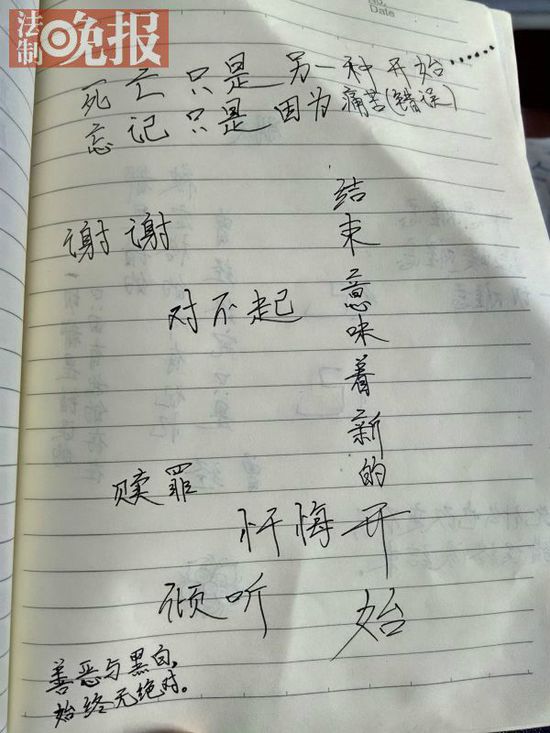 法制晚报
Date
死亡只是另一种开始……
忘记只是因为痛苦(错误)
谢谢
对不起
结束意味着新的开始
赎罪
忏悔
倾听
善恶与黑白,
始终无绝对。